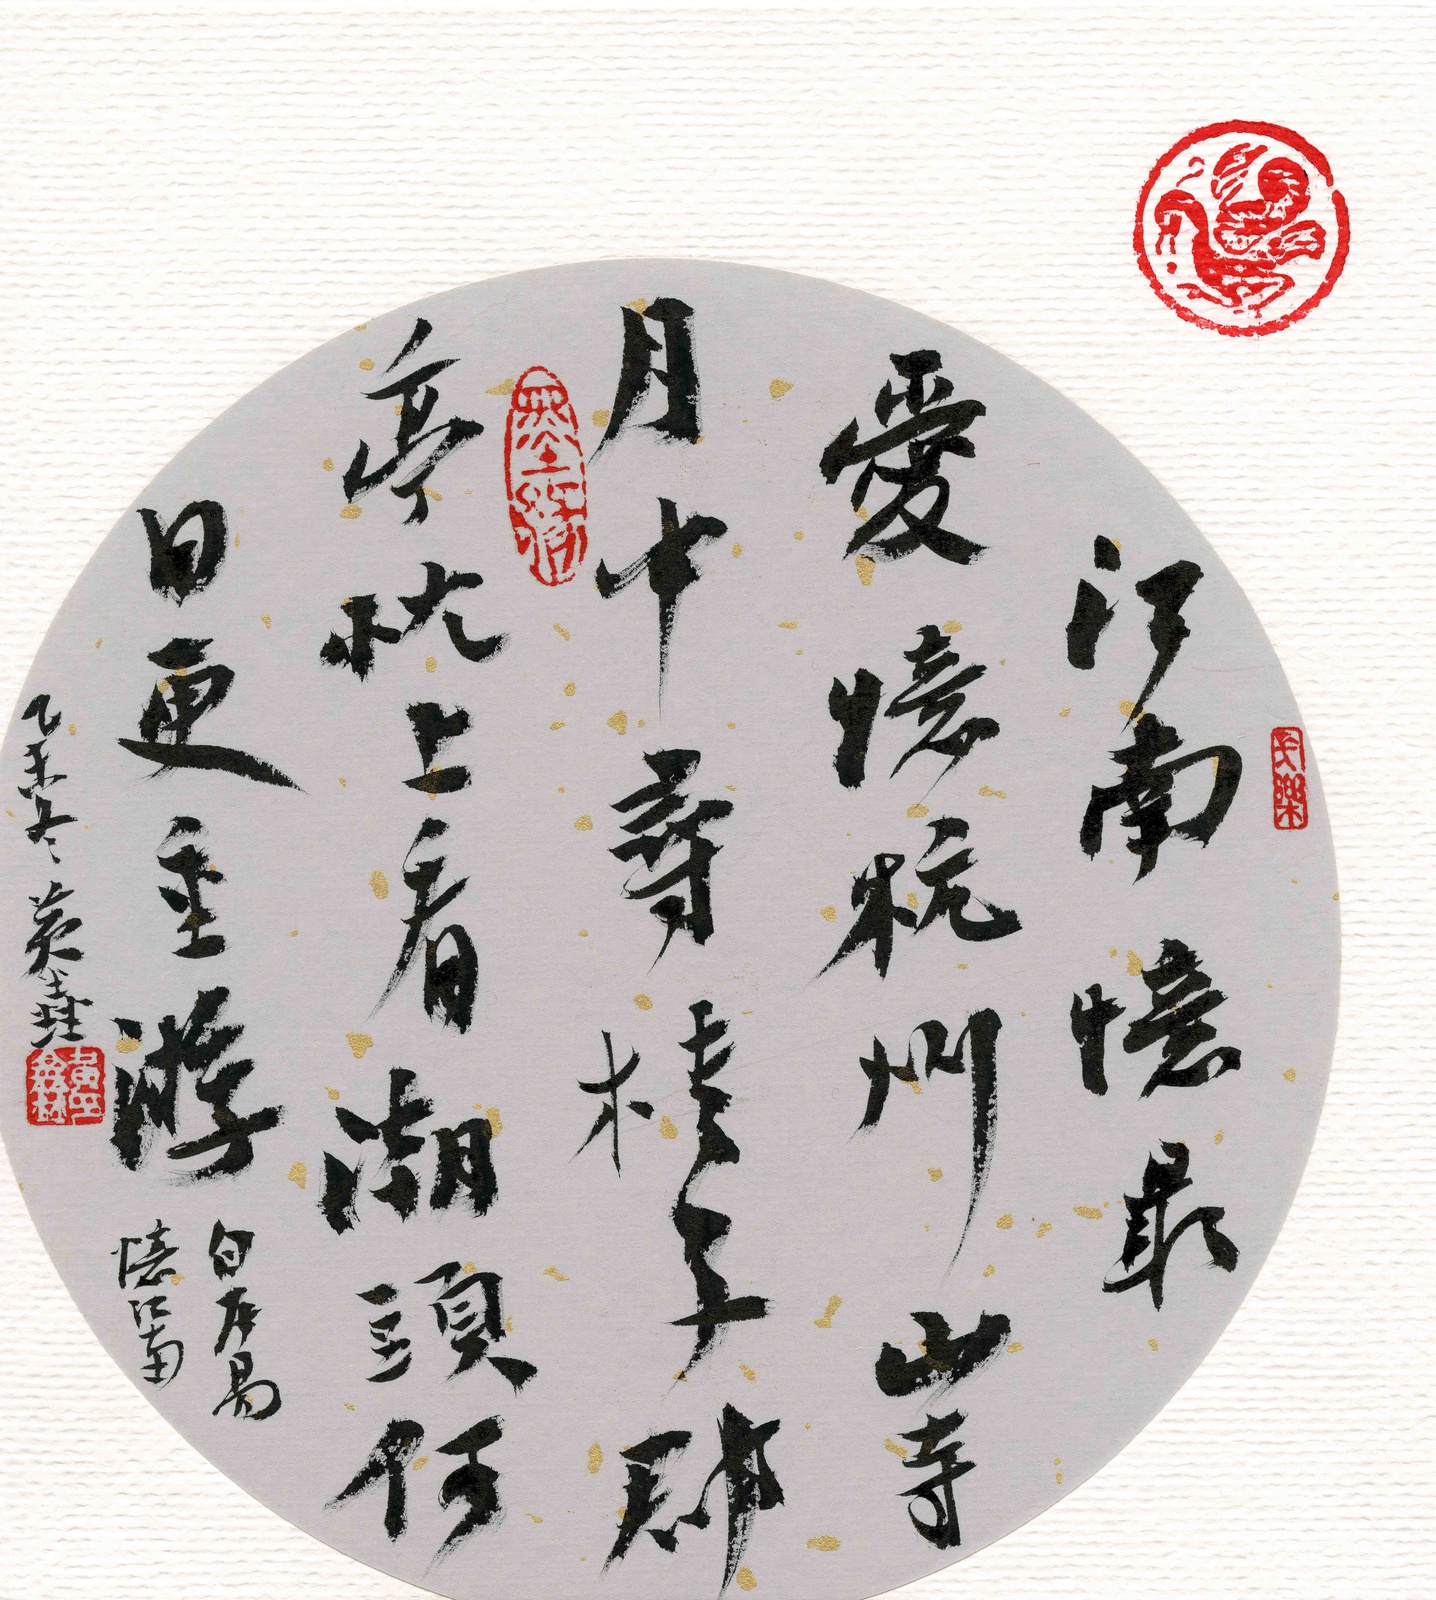 長樂
江南憶最
愛憶杭州山寺
月中尋桂子郡
亭枕上看潮頭何
日更重游
白居易
憶江南
乙未冬黃